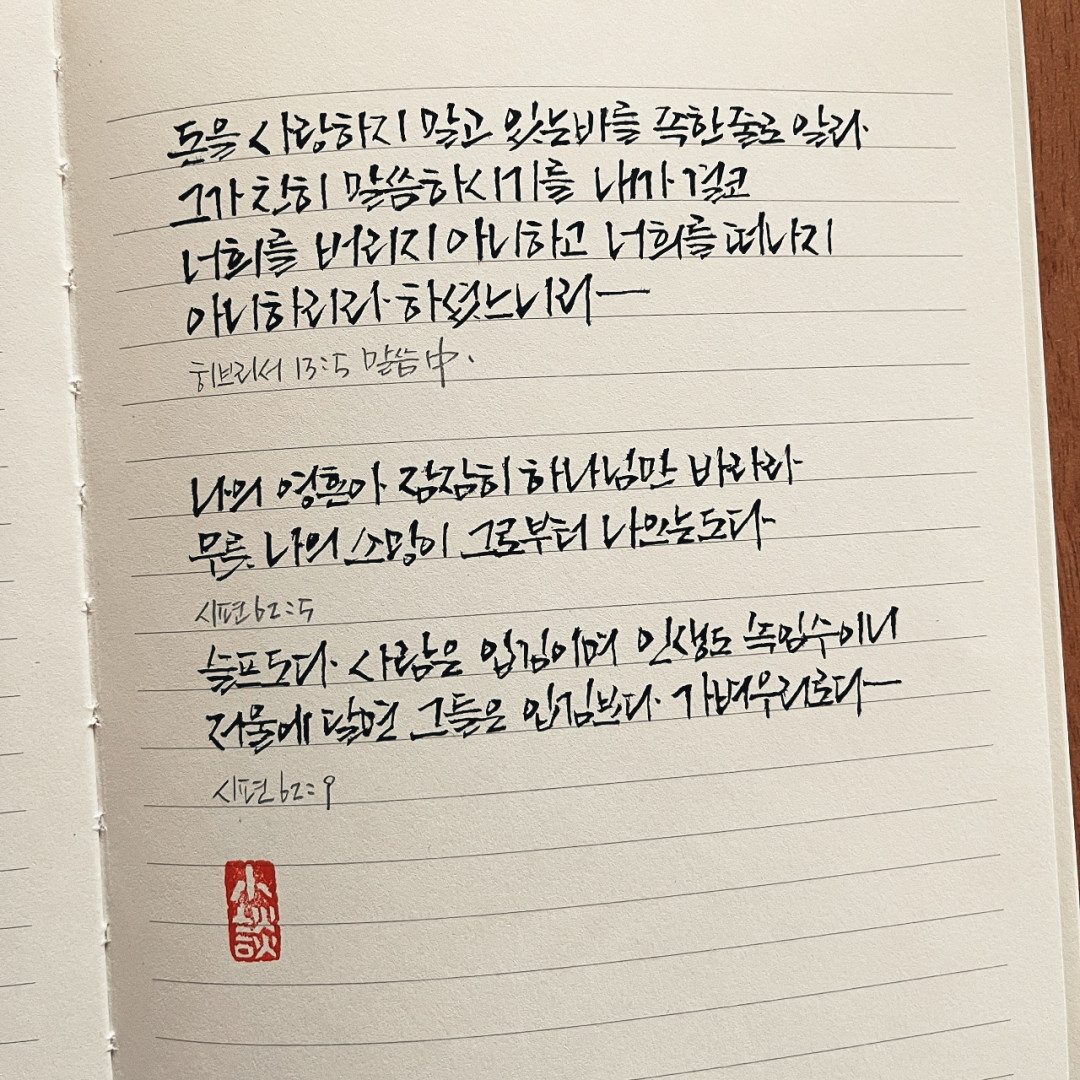 돈을 사랑하지 말고 있는바를 족한줄로 알라
그가 친히 말씀하시기를 내가 결코
너희를 버리지 아니하고 너희를 떠나지
아니하리라 하셨느니라
히브리서 13:5 말씀 中.
나의 영혼아 잠잠히 하나님만 바라라
무릇 나의 소망이 그로부터 나오는도다
시편 62:5
슬프도다 사람은 입김이며 인생도 속임수이니
저울에 달면 그들은 입김보다 가벼우리로다
시편 62:9
小
談